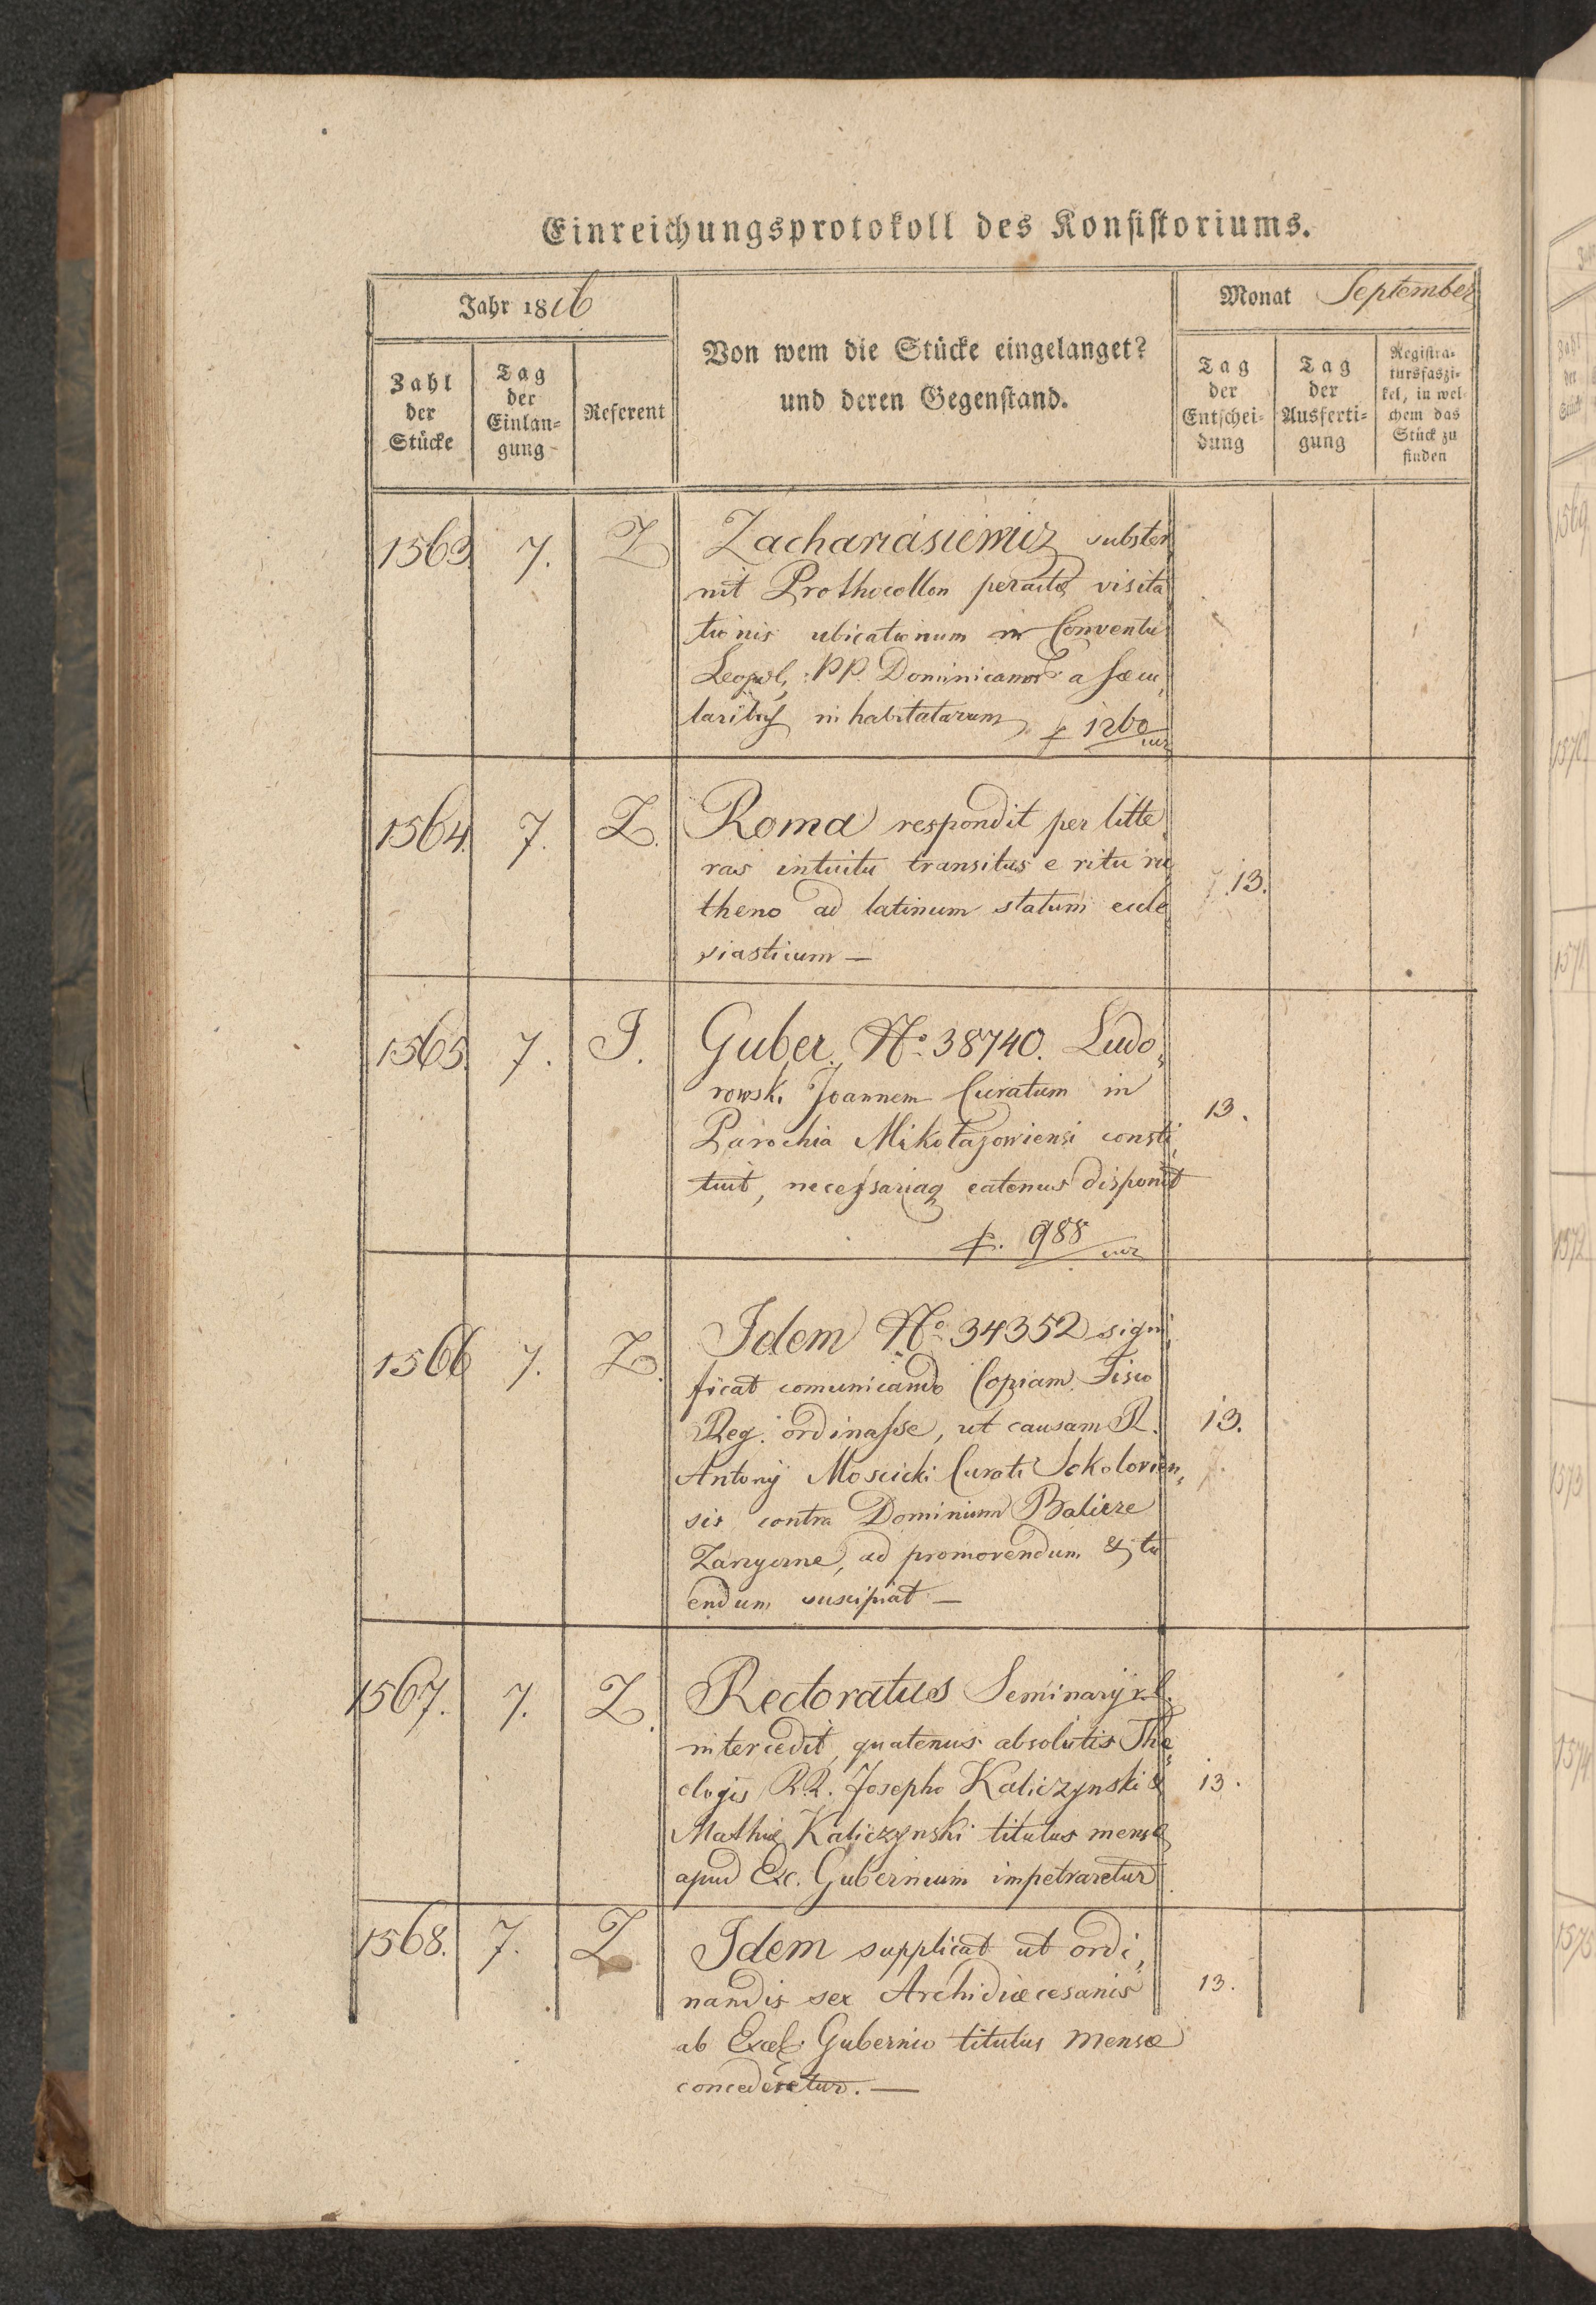 Einreichungsprotokoll des Konsistoriums.
Jahr 1816
Von wem die Stücke eingelanget?
und deren Gegenstand.
Monat September
Zahl
der
Stücke
Tag
der
Einlan=
gung
Referent
Tag
der
Entschei=
dung
Tag
der
Ausferti=
gung
Registra=
tursfaszi=
kel, in wel=
chem das
Stück zu
finden
1563. 7. Z Zachariasiewicz subster
nit Prothocollon peractæ visita
tionis ubicationum in Conventu
Leopol: PP. Dominicanor a sæcu,
laribus inhabitatarum 1260
1564. 7. Z. Roma respondit per litte,
ras intuitu transitus e ritu ru,
theno ad latinum statum eccle,
siasticum —
13.
1565. 7. J. Guber. No. 38740. Ludo,
rowski Joannem Curatum in
Parochia Mikołajowiensi consti,
tuit, necessariaq eatenus disponit
988
13.
1566 7. Z. Idem No. 34352 signi,
ficat comunicando Copiam Fisco
Reg. ordinasse, ut causam R.
Antonij Moscicki Curati Sokolovien,
sis contra Dominium Balicze
Zarzyczne, ad promovendum & tu
endum suscipiat —
13.
1567. 7. Z. Rectoratus Seminarij r. l.
intercedit, quatenus absolutis The,
ologis RR. Josepho Kaliczynski &
Mathiæ Kaliczynski titulus mensæ
apud Exc. Gubernium impetraretur
13.
1568. 7. Z Idem supplicat ut ordi,
nandis sex Archidiœcesanis
ab Excels. Gubernio titulus mensæ
concederetur. —
13.